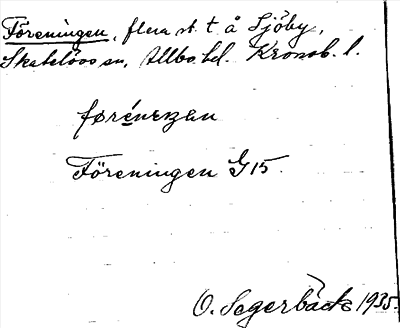 Föreningen, flera st. t å Sjöby,
Skatelövs sn, Allbo hd. Kronob. l.
førénɪŋən
Föreningen G 15.
O. Segerbäck 1935.